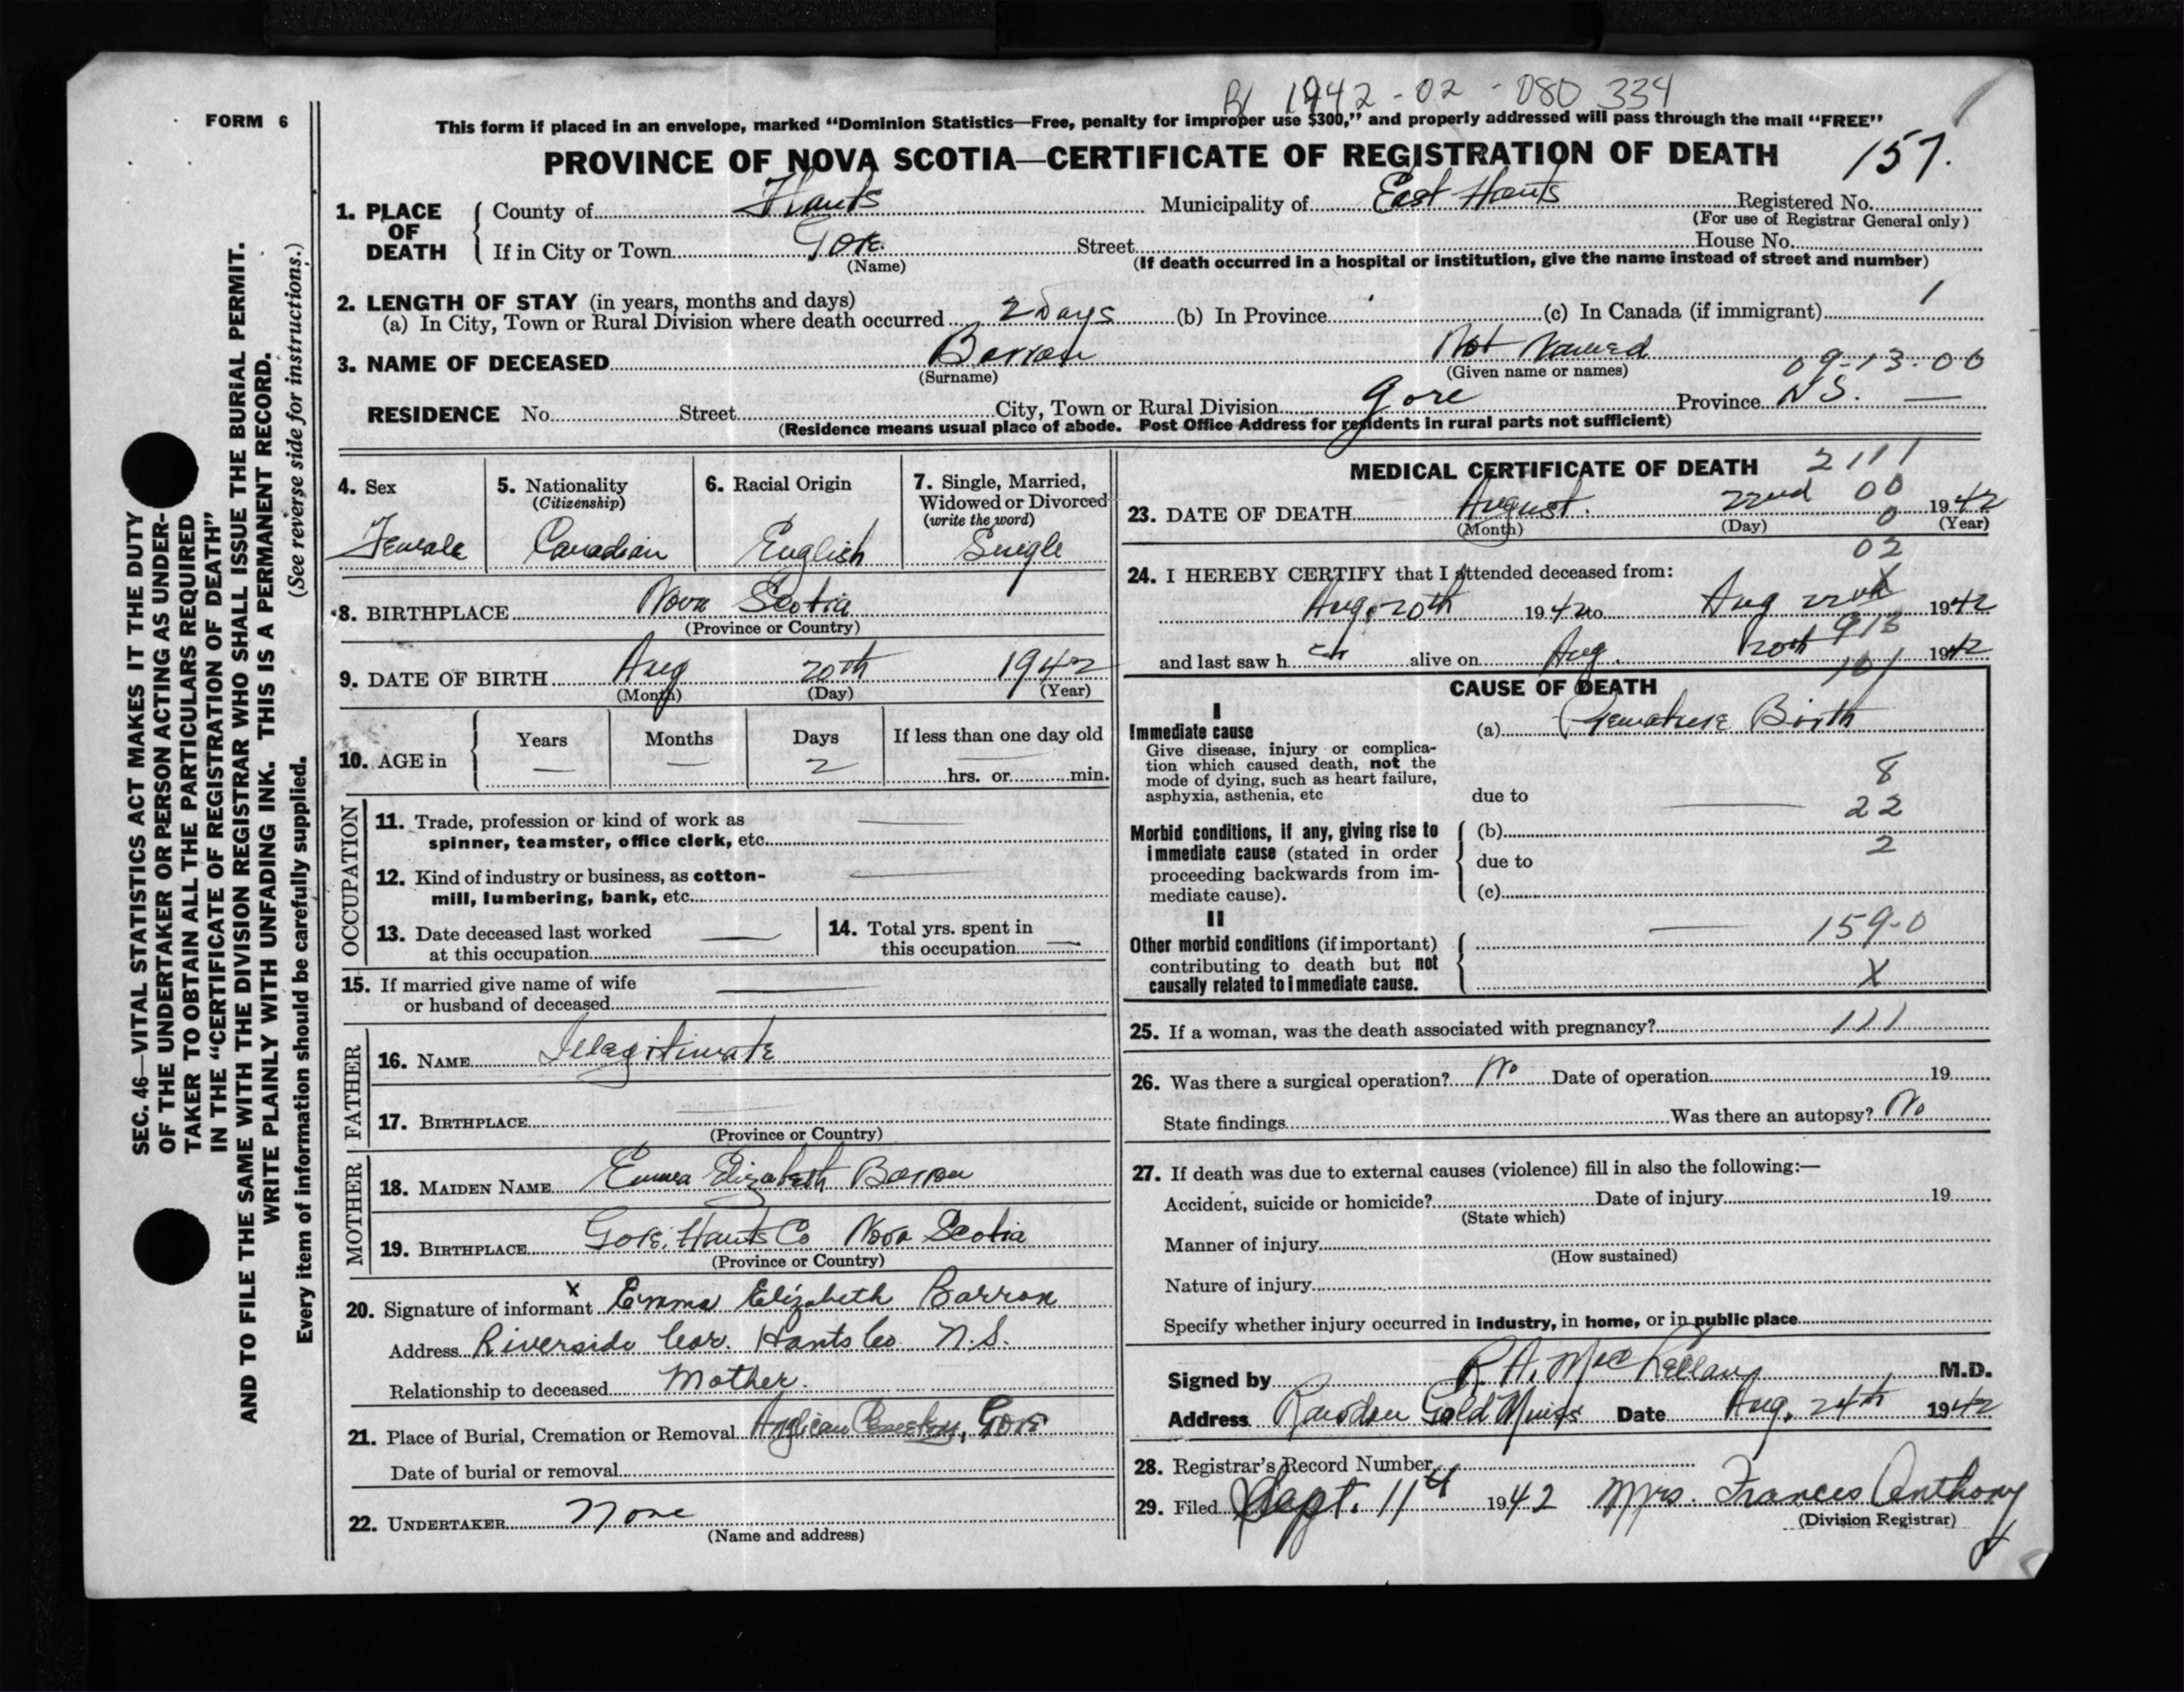 B/ 1942-02-080334
FORM 6
This form if placed in an envelope, marked “Dominion Statistics—Free, penalty for improper use $300,” and properly addressed will pass through the mail “FREE”
PROVINCE OF NOVA SCOTIA—CERTIFICATE OF REGISTRATION OF DEATH 157.
SEC. 46—VITAL STATISTICS ACT MAKES IT THE DUTY
OF THE UNDERTAKER OR PERSON ACTING AS UNDER-
TAKER TO OBTAIN ALL THE PARTICULARS REQUIRED
IN THE “CERTIFICATE OF REGISTRATION OF DEATH”
AND TO FILE THE SAME WITH THE DIVISION REGISTRAR WHO SHALL ISSUE THE BURIAL PERMIT.
WRITE PLAINLY WITH UNFADING INK. THIS IS A PERMANENT RECORD.
Every item of information should be carefully supplied. (See reverse side for instructions.)
1. PLACE OF DEATH
County of Hants Municipality of East Hants Registered No.
(For use of Registrar General only)
If in City or Town Gore Street House No.
(Name) (If death occurred in a hospital or institution, give the name instead of street and number)
2. LENGTH OF STAY (in years, months and days)
(a) In City, Town or Rural Division where death occurred 2 Days (b) In Province (c) In Canada (if immigrant)
3. NAME OF DECEASED Barron Not Named 09-13-00
(Surname) (Given name or names)
RESIDENCE No. Street City, Town or Rural Division Gore Province N.S. —
(Residence means usual place of abode. Post Office Address for residents in rural parts not sufficient)
4. Sex
Female
5. Nationality
(Citizenship)
Canadian
6. Racial Origin
English
7. Single, Married,
Widowed or Divorced
(write the word)
Single
8. BIRTHPLACE Nova Scotia
(Province or Country)
9. DATE OF BIRTH Aug 20th 1942
(Month) (Day) (Year)
10. AGE in
Years Months Days If less than one day old
— — 2 — hrs. or min.
OCCUPATION
11. Trade, profession or kind of work as
spinner, teamster, office clerk, etc. —
12. Kind of industry or business, as cotton-
mill, lumbering, bank, etc. —
13. Date deceased last worked
at this occupation —
14. Total yrs. spent in
this occupation —
15. If married give name of wife
or husband of deceased —
FATHER
16. NAME Illegitimate
17. BIRTHPLACE —
(Province or Country)
MOTHER
18. MAIDEN NAME Emma Elizabeth Barron
19. BIRTHPLACE Gore, Hants Co Nova Scotia
(Province or Country)
20. Signature of informant x Emma Elizabeth Barron
Address Riverside Cor. Hants Co. N.S.
Relationship to deceased Mother.
21. Place of Burial, Cremation or Removal Anglican Cemetery, Gore
Date of burial or removal
22. UNDERTAKER None
(Name and address)
MEDICAL CERTIFICATE OF DEATH 2111
00
23. DATE OF DEATH August. 22nd 1942
0
(Month) (Day) (Year)
02
24. I HEREBY CERTIFY that I attended deceased from:
X
Aug. 20th 1942 to Aug 22nd 1942
913
and last saw h er alive on Aug. 20th 1942
101
CAUSE OF DEATH
I
Immediate cause
Give disease, injury or complica-
tion which caused death, not the
mode of dying, such as heart failure,
asphyxia, asthenia, etc
(a) Premature Birth
8
due to —
22
Morbid conditions, if any, giving rise to
immediate cause (stated in order
proceeding backwards from im-
mediate cause).
(b)
2
due to
(c)
II
Other morbid conditions (if important)
contributing to death but not
causally related to immediate cause.
— 159-0
X
25. If a woman, was the death associated with pregnancy? 111
26. Was there a surgical operation? No Date of operation 19
State findings Was there an autopsy? No
27. If death was due to external causes (violence) fill in also the following:—
Accident, suicide or homicide? Date of injury 19
(State which)
Manner of injury
(How sustained)
Nature of injury
Specify whether injury occurred in industry, in home, or in public place
Signed by R. A. MacLellan M.D.
Address Rawdon Gold Mines Date Aug. 24th 1942
28. Registrar's Record Number
29. Filed Sept. 11th 1942 Mrs. Frances Anthony
(Division Registrar)